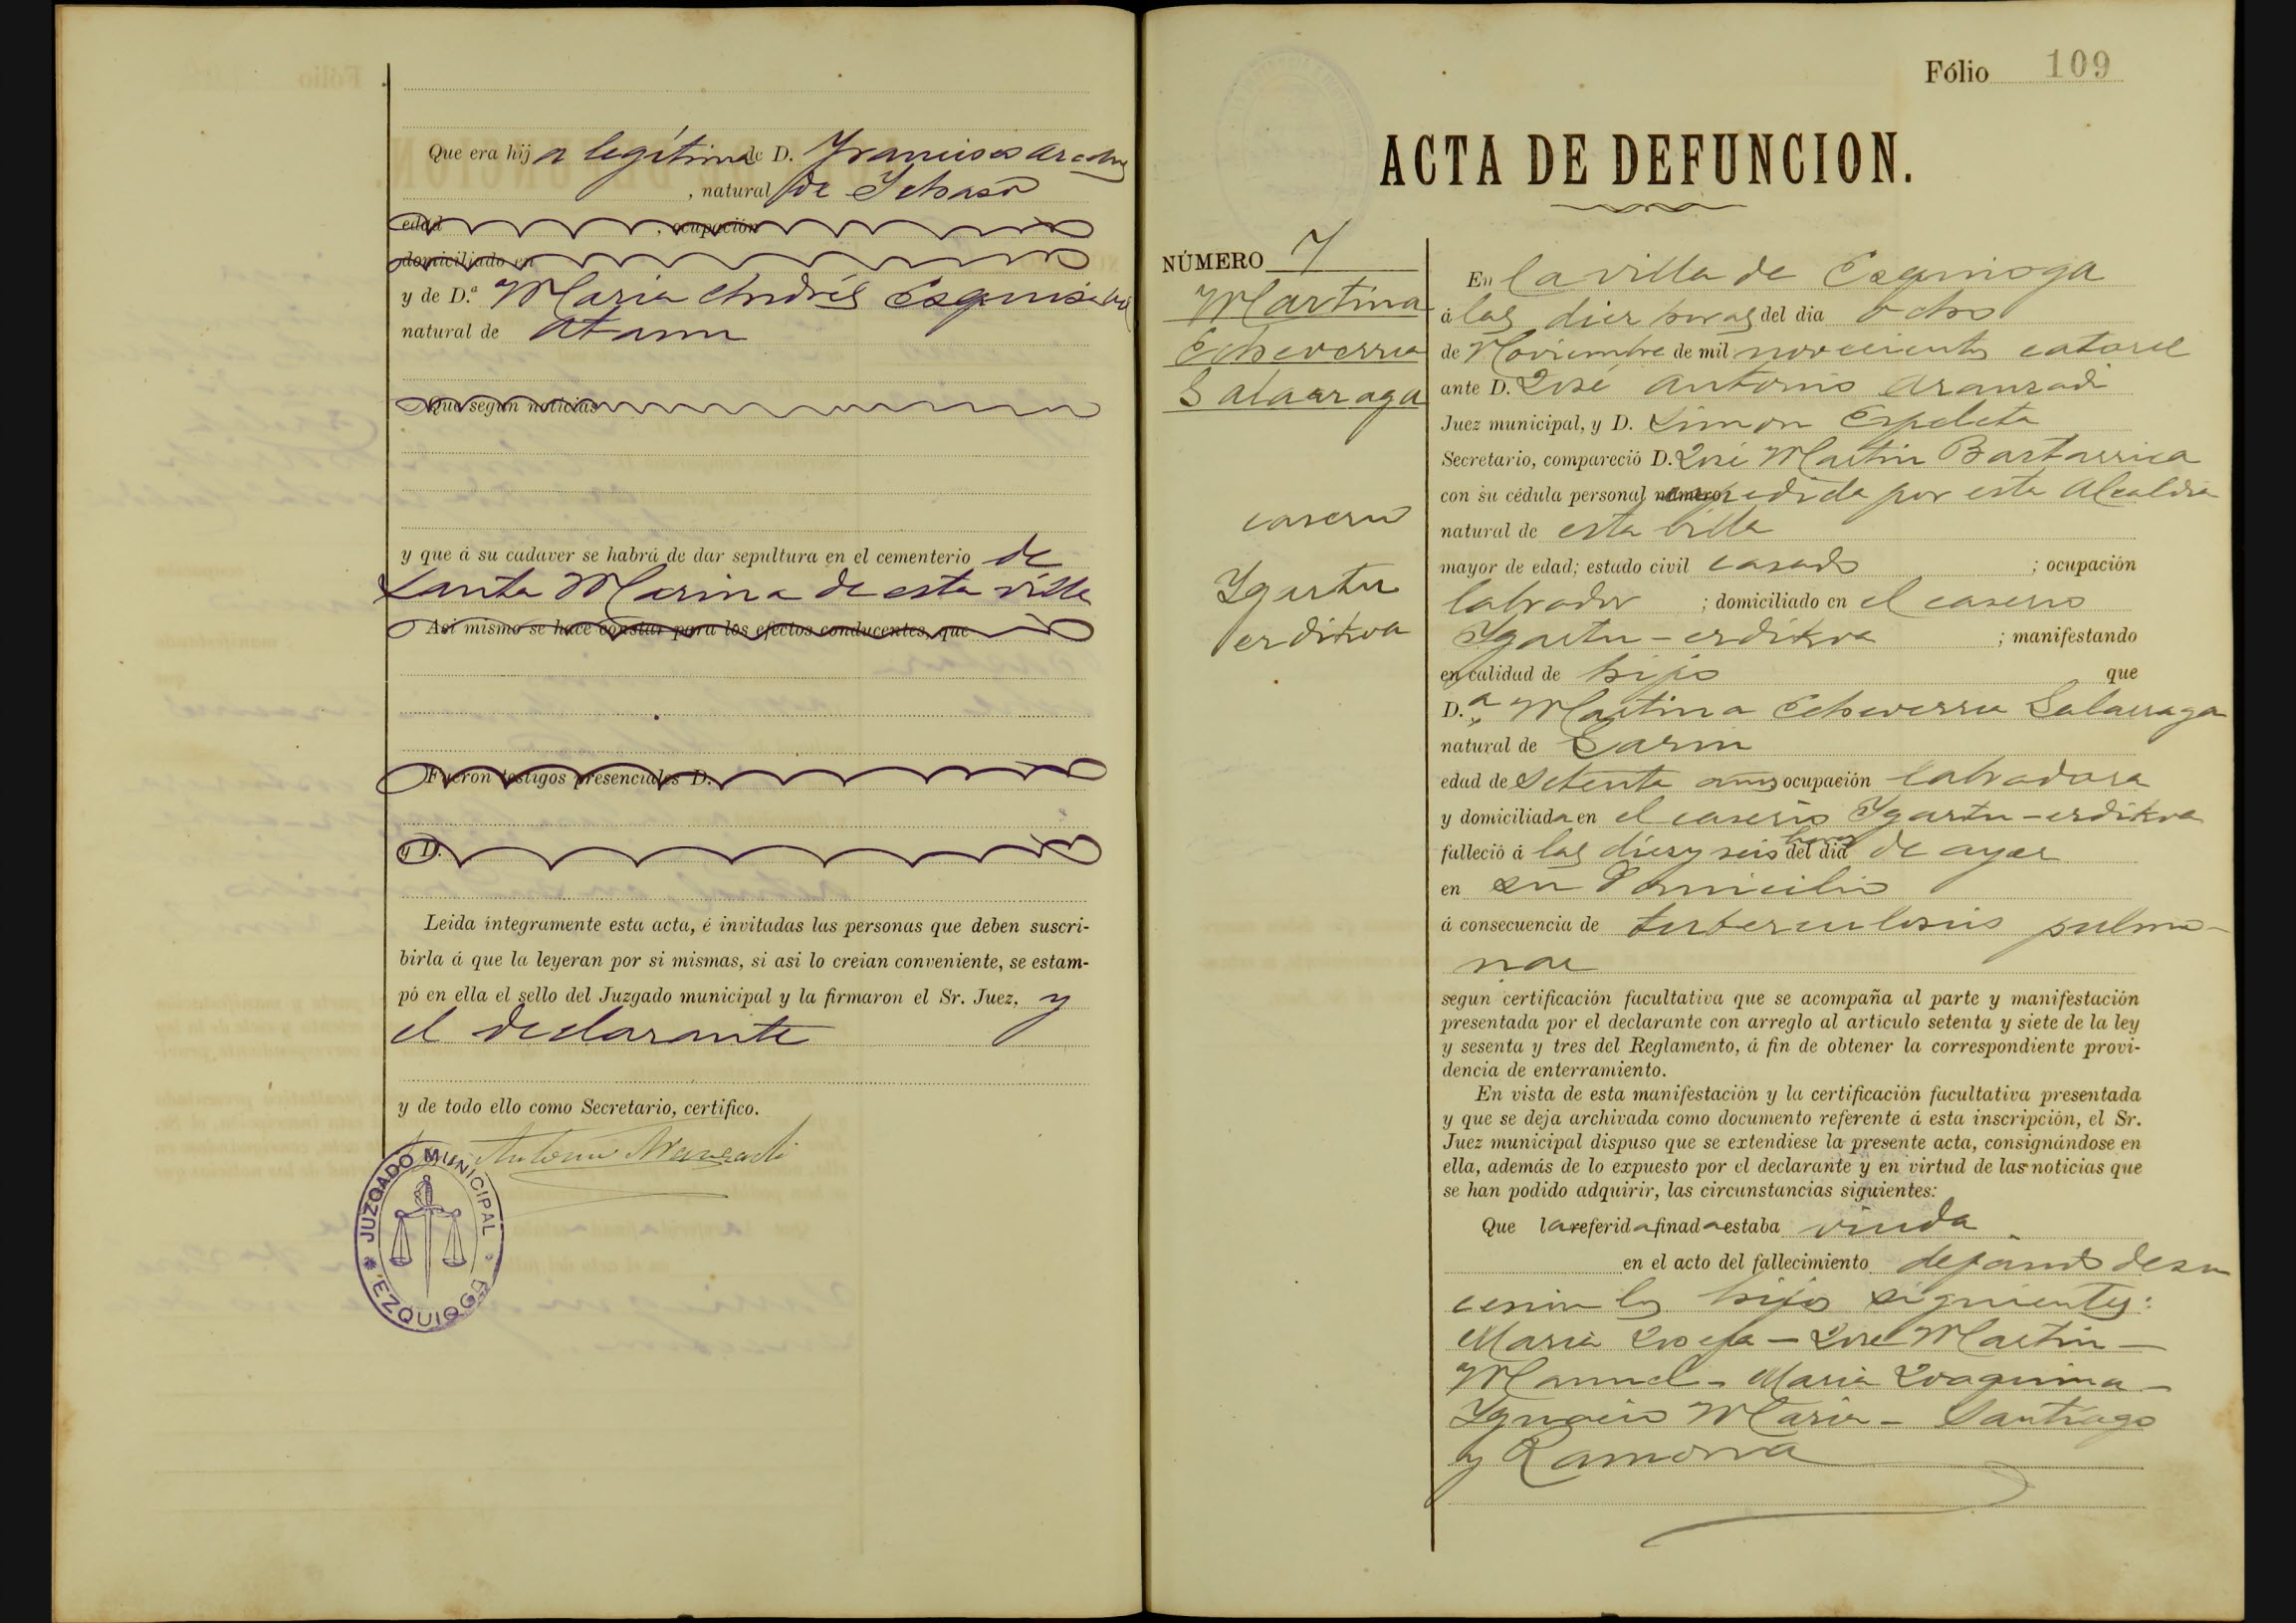 Que era hija legítima de D. Francisco
, natural de Ichaso
edad , ocupación
domiciliado en
y de D.ª Maria Andrés
natural de Ataun
Que según noticias
y que á su cadaver se habrá de dar sepultura en el cementerio de
Santa Marina de esta villa
Asi mismo se hace constar para los efectos conducentes, que
Fueron testigos presenciales D.
y D.
Leida íntegramente esta acta, é invitadas las personas que deben suscri-
birla á que la leyeran por si mismas, si asi lo creian conveniente, se estam-
pó en ella el sello del Juzgado municipal y la firmaron el Sr. Juez, y
el declarante
y de todo ello como Secretario, certifico.
Antonio Aranzadi
JUZGADO MUNICIPAL
EZQUIOGA
Fólio 109
ACTA DE DEFUNCION.
NÚMERO 7
Martina
Echeverria
Salaarraga
caserio
Ygartu
erdikoa
En la villa de Ezquioga
á las diez horas del dia ocho
de Noviembre de mil novecientos catorce
ante D. José Antonio Aranzadi
Juez municipal, y D. Simon Ezpeleta
Secretario, compareció D. José Martin Bastarrica
con su cédula personal número expedida por esta Alcaldia
natural de esta villa
mayor de edad; estado civil casado ; ocupación
labrador ; domiciliado en el caserio
Ygartu-erdikoa ; manifestando
en calidad de hijo que
D.ª Martina Echeverria Salarraga
natural de
edad de setenta años ocupación labradora
y domiciliada en el caserio Ygartu-erdikoa
falleció á las diez y seis horas del dia de ayer
en su domicilio
á consecuencia de tuberculosis pulmo-
nar
segun certificación facultativa que se acompaña al parte y manifestación
presentada por el declarante con arreglo al artículo setenta y siete de la ley
y sesenta y tres del Reglamento, á fin de obtener la correspondiente provi-
dencia de enterramiento.
En vista de esta manifestación y la certificación facultativa presentada
y que se deja archivada como documento referente á esta inscripción, el Sr.
Juez municipal dispuso que se extendiese la presente acta, consignándose en
ella, además de lo expuesto por el declarante y en virtud de las noticias que
se han podido adquirir, las circunstancias siguientes:
Que la referida finada estaba viuda
en el acto del fallecimiento dejando de su
union los hijos siguientes:
Maria Josefa - José Martin -
Manuel - Maria Joaquina -
Ygnacio Maria - Santiago
y Ramona